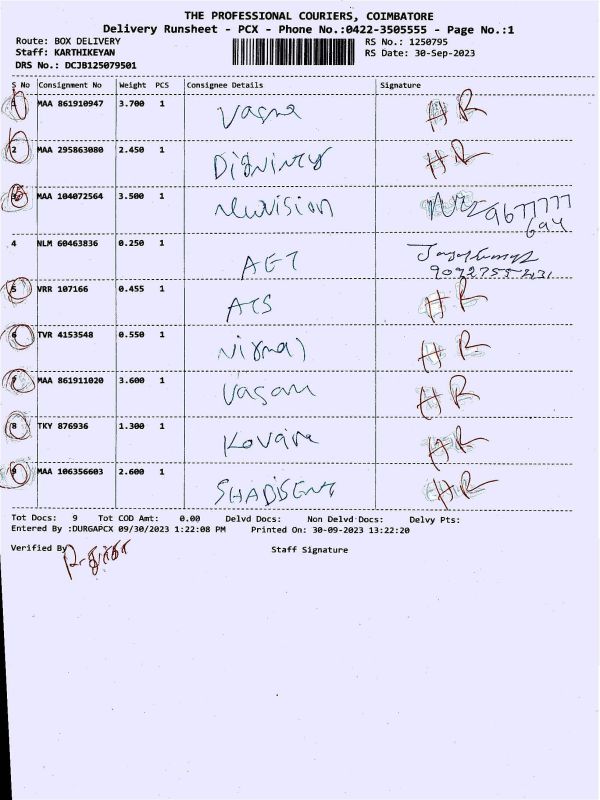 THE PROFESSIONAL COURIERS, COIMBATORE
Delivery Runsheet - PCX - Phone No.:0422-3505555 - Page No.:1
Route: BOX DELIVERY RS No.: 1250795
Staff: KARTHIKEYAN RS Date: 30-Sep-2023
DRS No.: DCJB125079501
S No Consignment No Weight PCS Consignee Details Signature
1 MAA 861910947 3.700 1 HR
2 MAA 295863080 2.450 1 Dignity HR
MAA 104072564 3.500 1 Newvision
4 NLM 60463836 0.250 1 AET
5 VRR 107166 0.455 1 ATS HR
6 TVR 4153548 0.550 1 Nirmal HR
7 MAA 861911020 3.600 1 Vasan HR
8 TKY 876936 1.300 1 HR
9 MAA 106356603 2.600 1 HR
Tot Docs: 9 Tot COD Amt: 0.00 Delvd Docs: Non Delvd Docs: Delvy Pts:
Entered By :DURGAPCX 09/30/2023 1:22:08 PM Printed On: 30-09-2023 13:22:20
Verified By Staff Signature